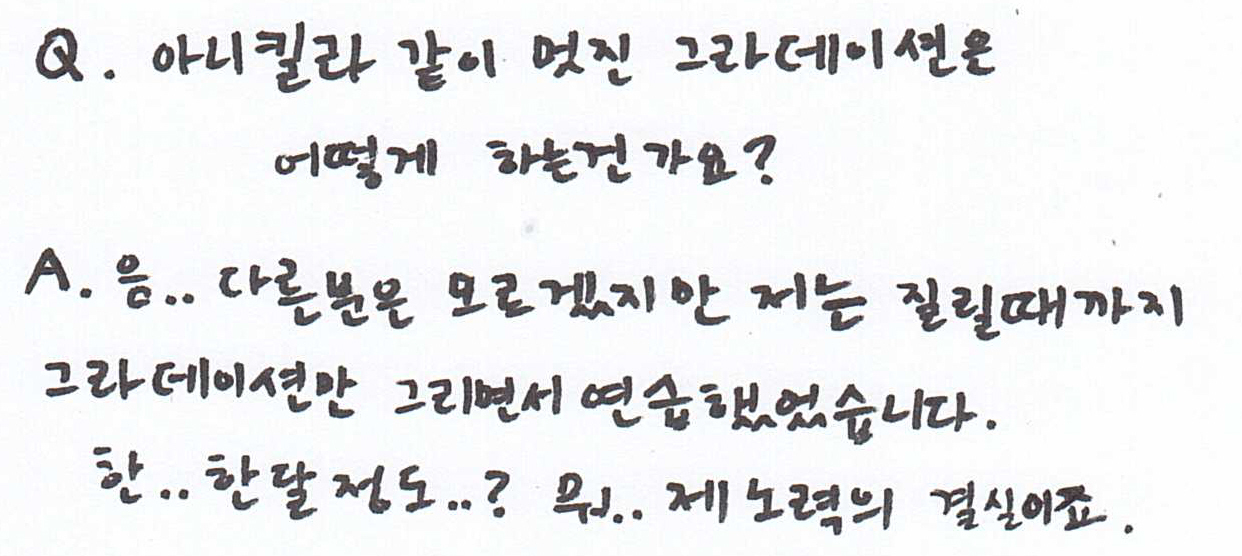 Q. 아니킬라 같이 멋진 그라데이션은
어떻게 하는건가요?
A. 음.. 다른분은 모르겠지만 저는 질릴때까지
그라데이션만 그리면서 연습했었습니다.
한.. 한달정도..? 뭐.. 제 노력의 결실이죠.